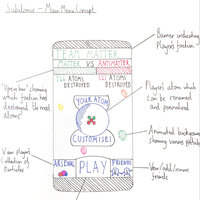 Subatomic - Main Menu Concept
TEAM MATTER
MATTER VS ANTIMATTER
ATOMS DESTROYED
ATOMS DESTROYED
YOUR ATOM
CUSTOMISE!
ARSENAL
PLAY
FRIENDS
Banner indicating
Player's faction
showing
which faction has
destroyed the most
atoms
Players atom which
can be renamed
and personalised
Animated background
showing various particles
View players
collection of
particles
View/add/remove
friends